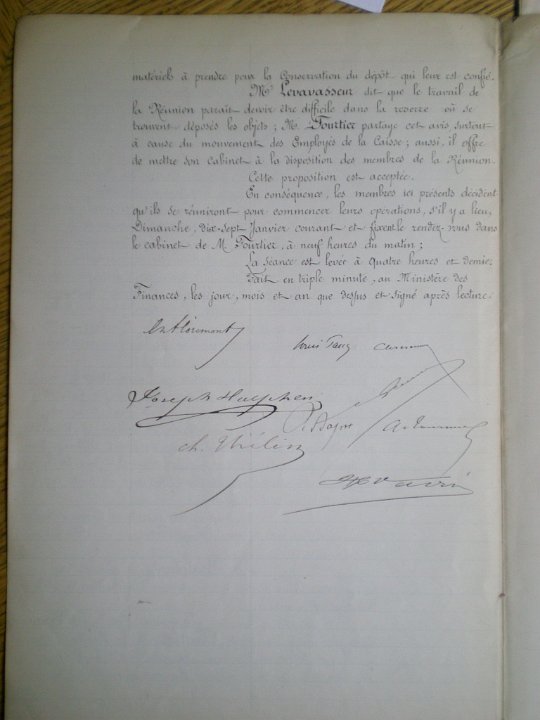 matériels à prendre pour la Conservation du dépôt qui leur est confié.
Mr Levavasseur dit que le travail de
la Réunion paraît devoir être difficile dans la reserre où se
trouvent déposés les objets ; M. Tourtier partage cet avis, surtout
à cause du mouvement des Employés de la Caisse ; aussi, il offre
de mettre son cabinet à la disposition des membres de la Réunion.
Cette proposition est acceptée.
En conséquence, les membres ici présents décident
qu'ils se réuniront pour commencer leurs opérations, s'il y a lieu,
Dimanche, dix-sept Janvier courant et fixent le rendez-vous dans
le cabinet de M. Tourtier, à neuf heures du matin ;
La Séance est levée à Quatre heures et demie.
Fait en triple minute, au Ministère des
Finances, les jour, mois et an que dessus et signé après lecture.
Joseph Halphen
ch. Thélin